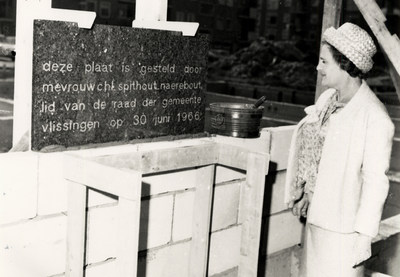 deze plaat is gesteld door
mevrouw ch. spithout-naerebout
lid van de raad der gemeente
vlissingen op 30 juni 1966